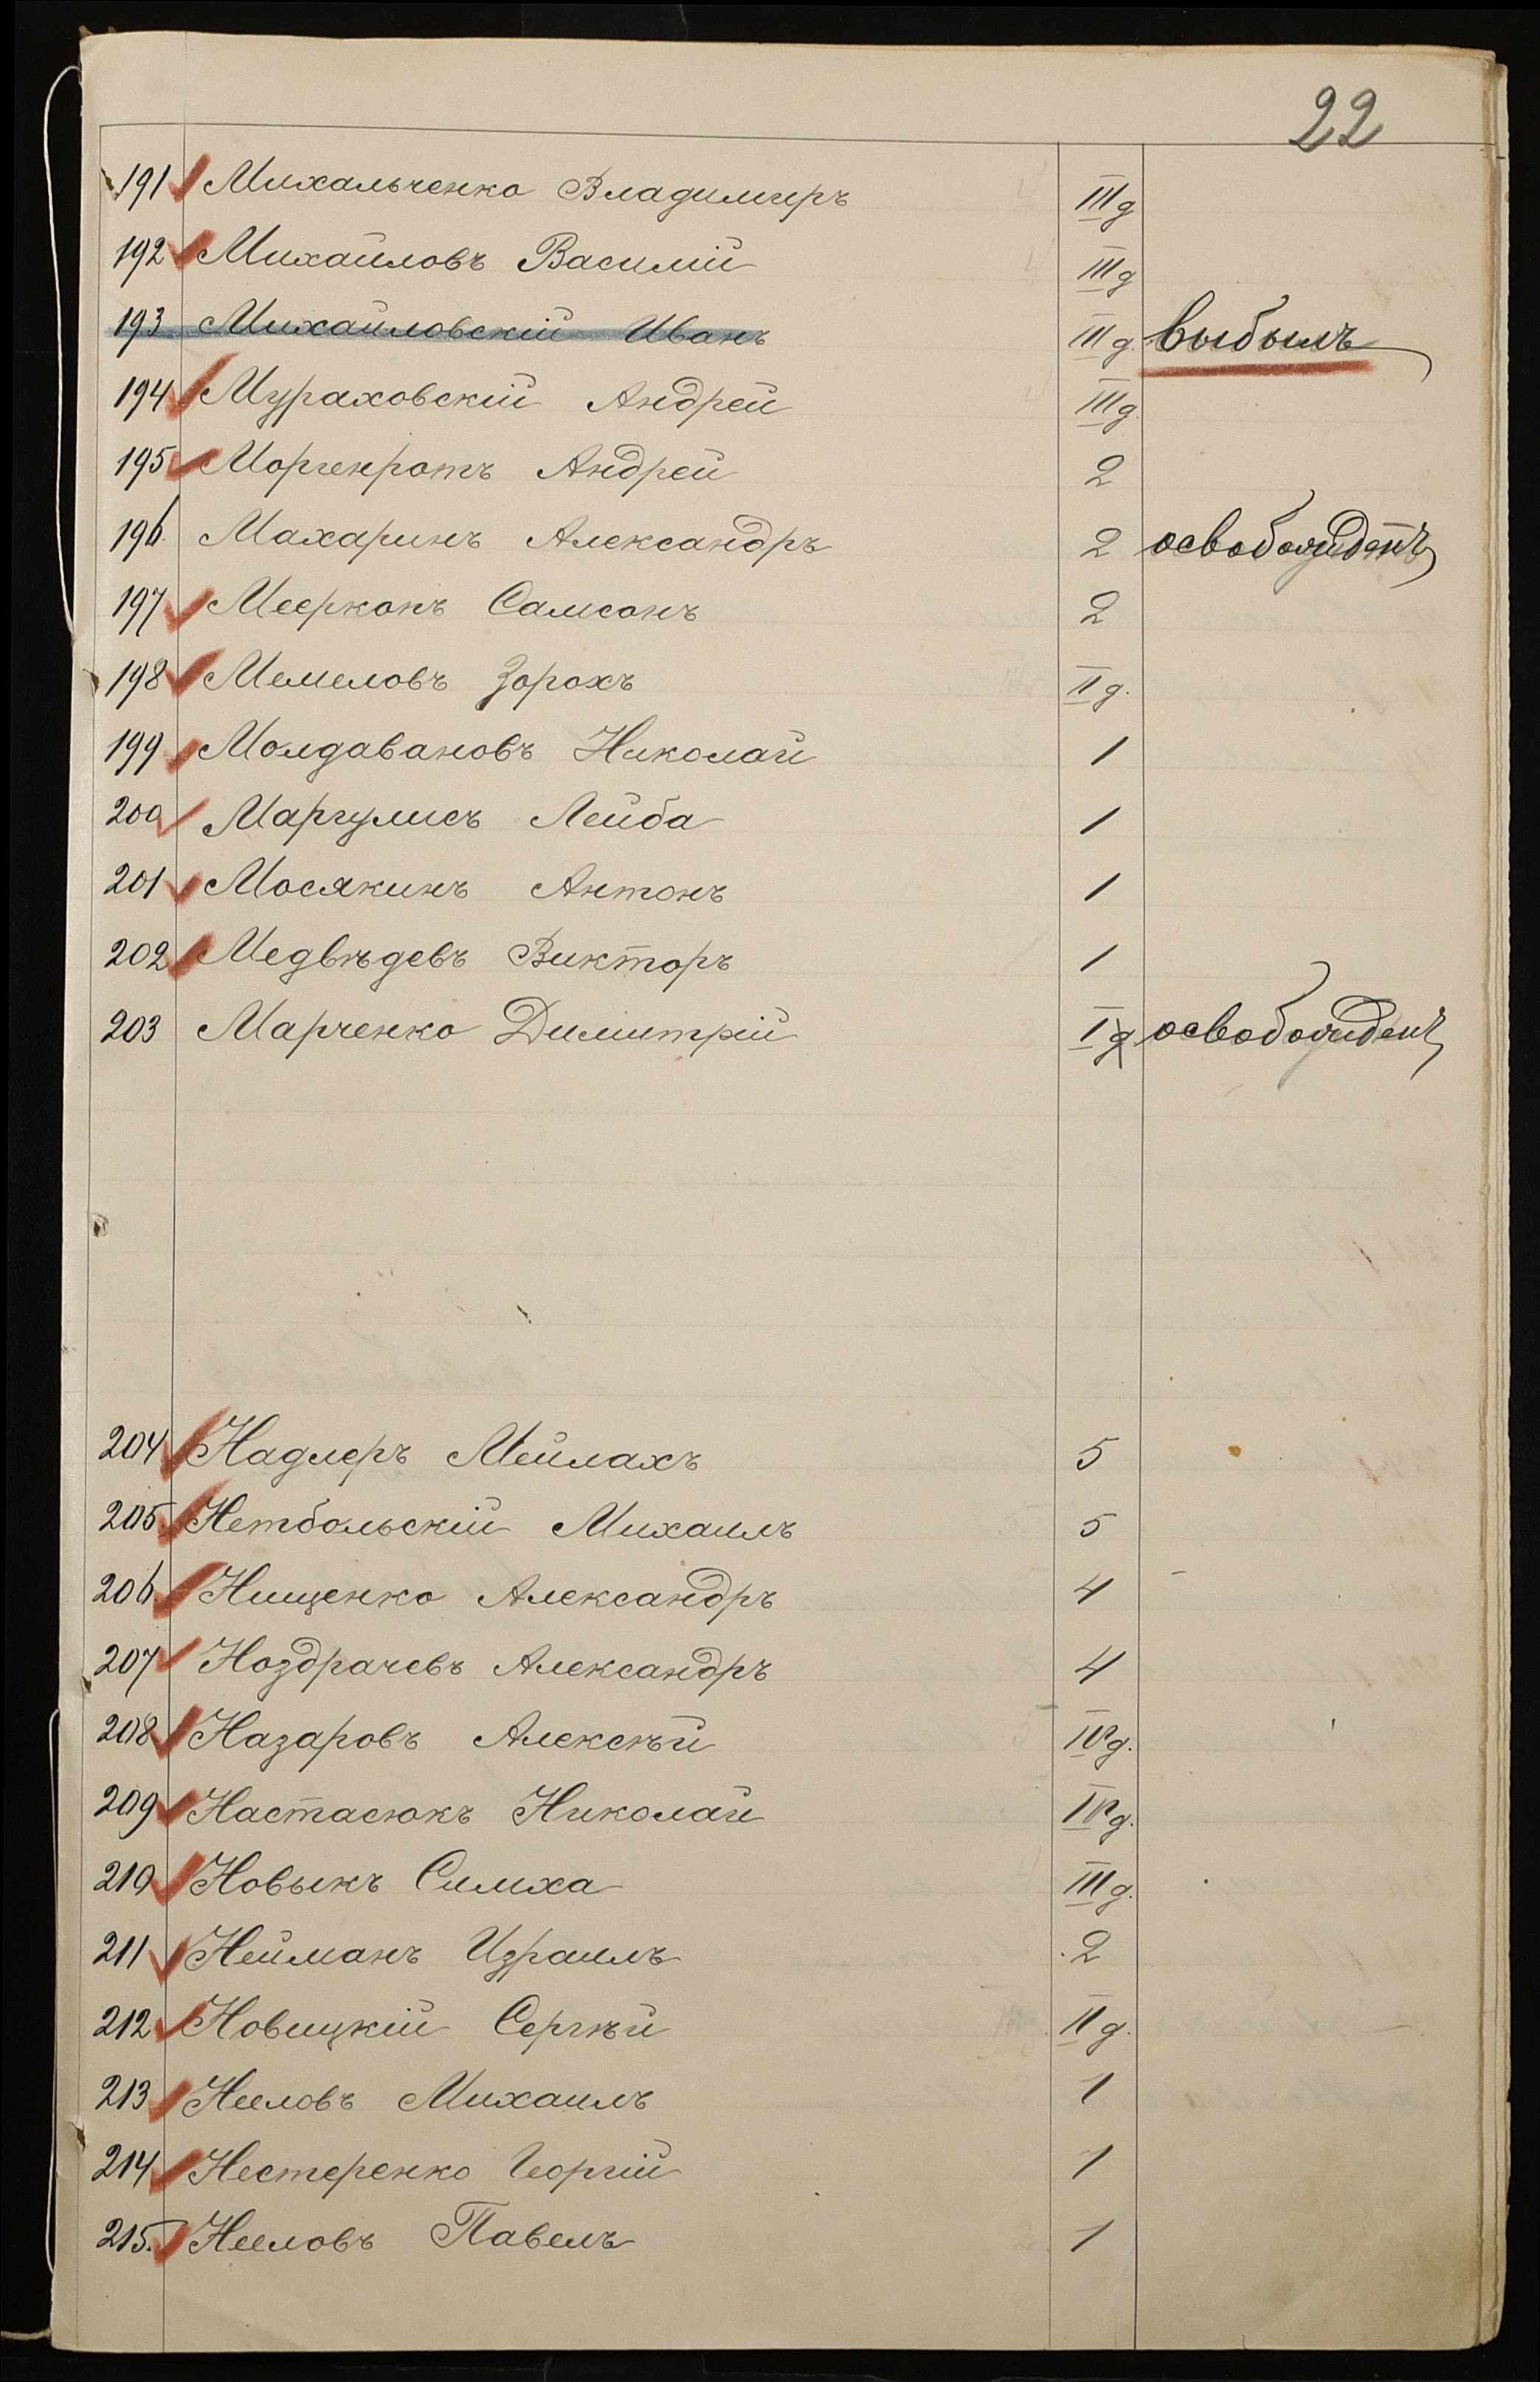 22
191 Михальченко Владимиръ IIIд
192 Михайловъ Василій IIIд
193 Михайловскій Иванъ IIIд. выбылъ
194 Мураховскій Андрей IIIд.
195 Моргенротъ Андрей 2
196. Махаринъ Александръ 2 освобожденъ
197 Мееркопъ Самсонъ 2
198 Мемеловъ Зорохъ IIд.
199 Молдавановъ Николай 1
200 Маргулисъ Лейба 1
201 Мосякинъ Антонъ 1
202 Медвѣдевъ Викторъ 1
203 Марченко Димитрій Iд освобожденъ
204 Надлеръ Мейлахъ 5
205 Нетбольскій Михаилъ 5
206. Нищенко Александръ 4
207 Ноздрачевъ Александръ 4
208 Назаровъ Алексѣй IVд.
209 Настасюкъ Николай IVд.
210 Новыкъ Симха IIIд.
211 Нейманъ Израиль 2
212 Новицкій Сергѣй IIд.
213 Нееловъ Михаилъ 1
214 Нестеренко Георгій 1
215. Нееловъ Павелъ 1